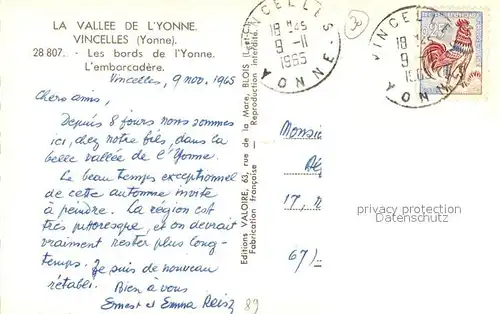 LA VALLEE DE L'YONNE.
VINCELLES (Yonne).
28 807. - Les bords de l'Yonne.
L'embarcadère.
Vincelles, 9 nov. 1965
Chers amis,
Depuis 8 jours nous sommes
ici, chez notre fils, dans la
belle vallée de l'Yonne.
Le beau temps exceptionnel
de cette automne invite
à peindre. La région est
très pittoresque, et on devrait
vraiment rester plus long-
temps. Je suis de nouveau
rétabli. Bien à vous
Ernest et Emma Reisz
89
Editions VALOIRE, 63, rue de la Mare, BLOIS
Fabrication française - Reproduction interdite.
VINCELLES
18 H45
9 -11
1965
YONNE
VINCELLES
18 H
9
YONNE
Monsie
17,
67)
privacy protection
Datenschutz